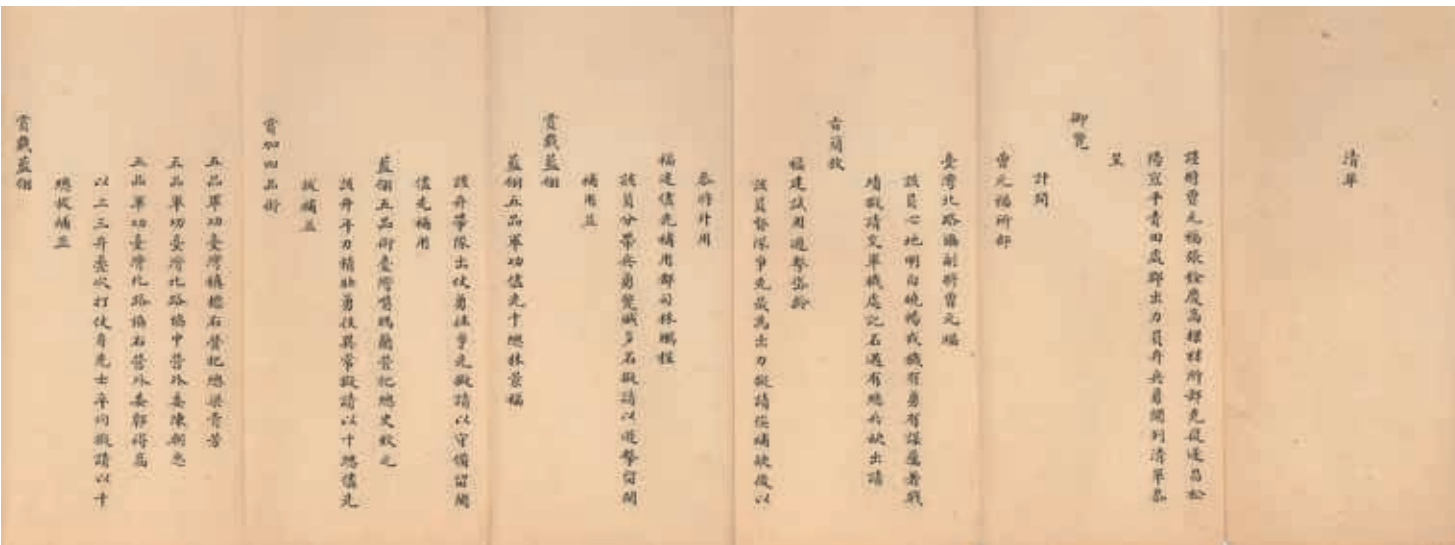 清單
謹將曾元福張銓慶高樑材所部克復遂昌松
陽宣平青田處郡出力員弁兵勇開列清單恭
呈
御覽
計開
曾元福所部
臺灣北路協副將曾元福
該員心地明白曉暢戎機有勇有謀屢著戰
績擬請交軍機處記名遇有總兵缺出請
旨簡放
福建試用遊擊岱齡
該員督隊爭先最為出力擬請俟補缺後以
叅將升用
福建儘先補用都司林 程
該員分帶兵勇斃賊多名擬請以遊擊留閩
補用並
賞戴藍翎
藍翎五品軍功儘先千總林景福
該弁帶隊出仗勇往爭先擬請以守備留閩
儘先補用
藍翎五品銜臺灣噶瑪蘭營把總史 元
該弁年力精壯勇往異常擬請以千總儘先
拔補並
賞加四品銜
五品軍功臺灣鎮標右營把總梁青芳
五品軍功臺灣北路協中營外委陳朝忠
五品軍功臺灣北路協右營外委郭得高
以上三弁叠次打仗身先士卒均擬請以千
總拔補並
賞戴藍翎